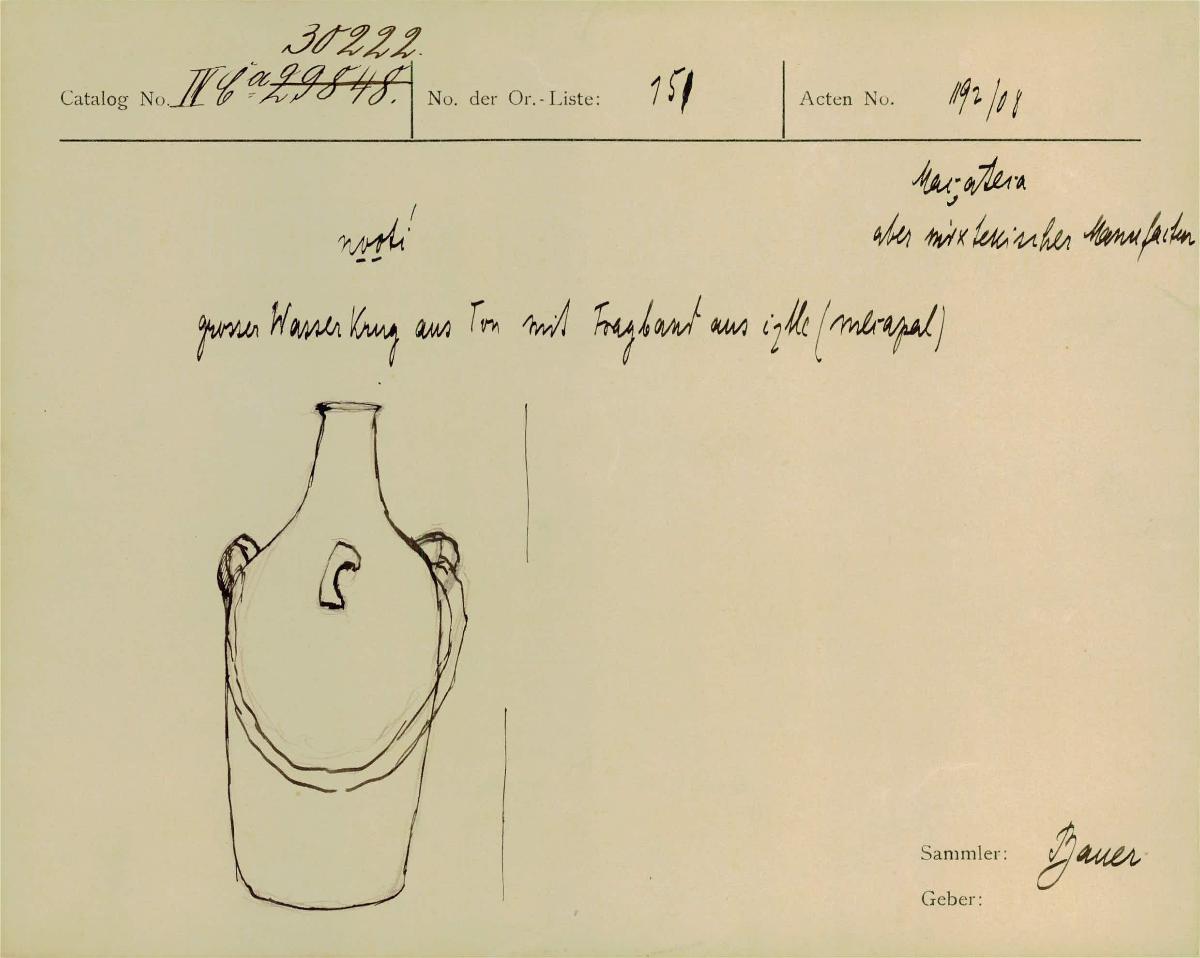 30222.
Catalog No. IV Ca 29848. No. der Or.-Liste: 151 Acten No. 1192/08
aber mixtekischer Manufactur
grosser Wasser Krug aus Ton mit Tragband aus ixtle (mecapal)
Sammler: Bauer
Geber: